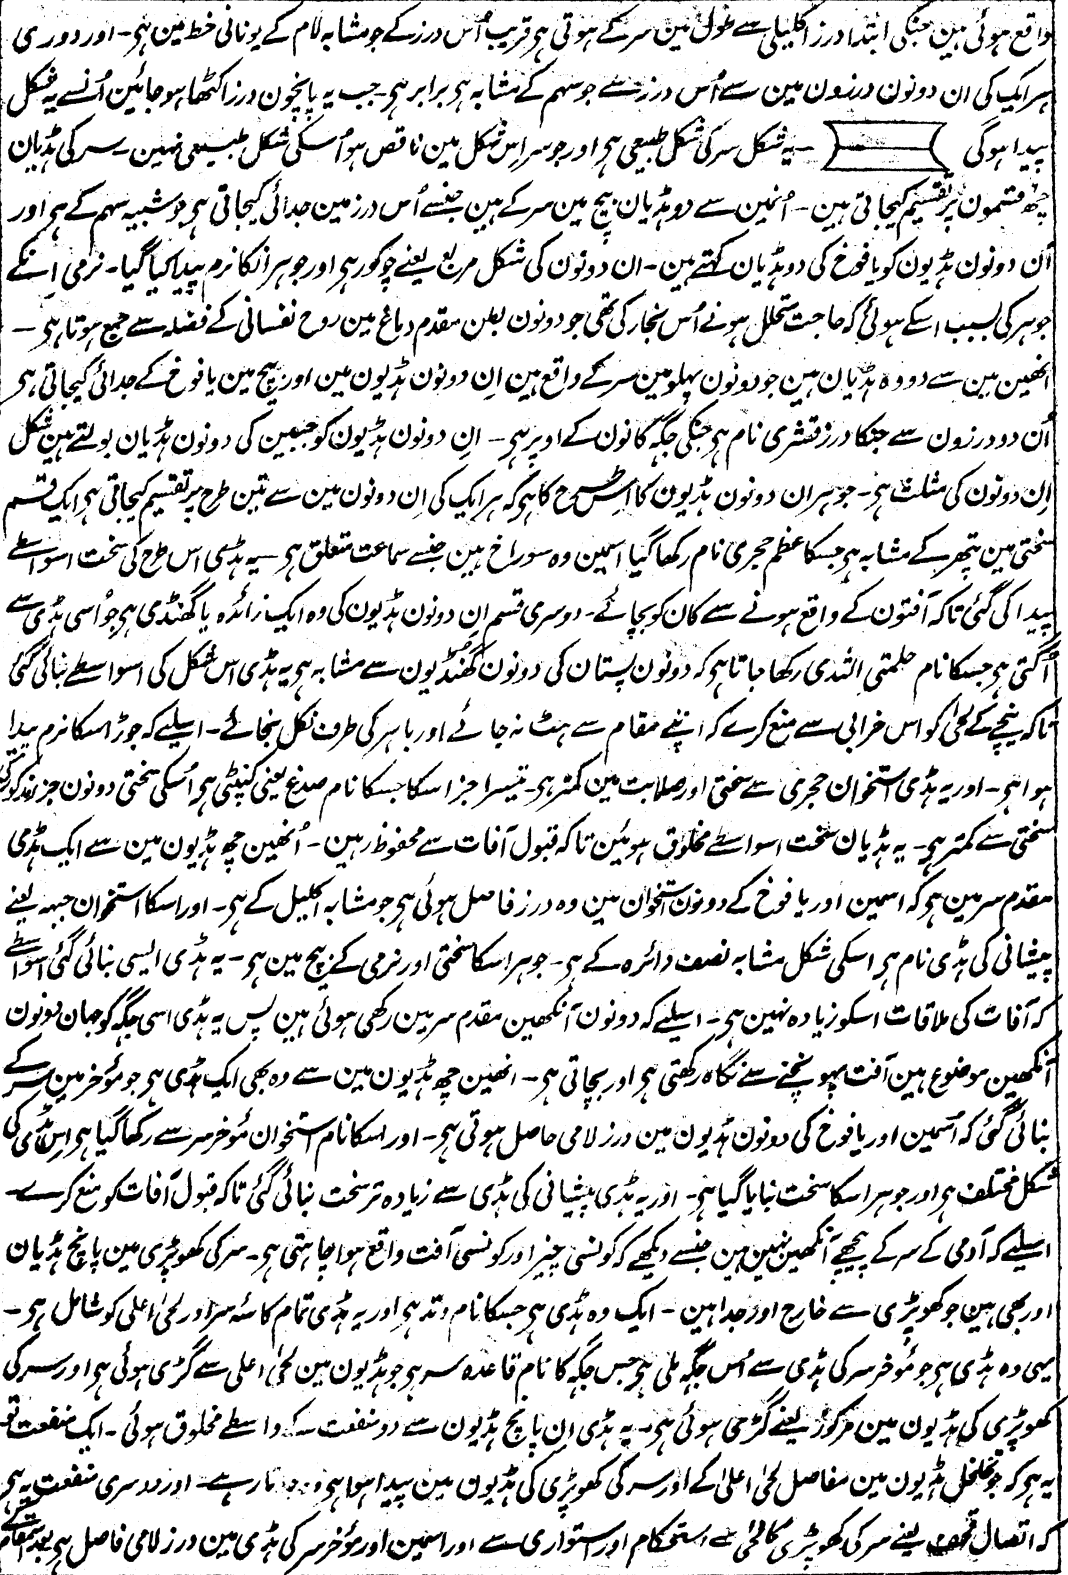 واقع ہوئی ہین جنکی ابتدا درز اکلیلی سے طول مین سر کے ہوتی ہی قریب اُس درز کے جو مشابہ لام کے یونانی خط مین ہی۔ اور دوری
ہر ایک کی ان دونون درزون مین سے اُس درز سے جو سہم کے مشابہ ہی برابر ہی۔ جب یہ پانچون درز اکٹھا ہو جائین اُنسے یہ شکل
پیدا ہوگی ۔ یہ شکل سر کی شکل طبیعی ہی اور جو سر اِس شکل مین ناقص ہو اُسکی شکل طبیعی نہین۔ سر کی ہڈیان
چھ قسمون پر تقسیم کیجاتی ہین۔ اُنمین سے دو ہڈیان بیچ مین سر کے ہین جنسے اُس درز مین جدائی کیجاتی ہی جو شبیہ سہم کے ہی اور
اُن دونون ہڈیون کو یافوخ کی دو ہڈیان کہتے ہین۔ ان دونون کی شکل مربع یعنے چوکور ہی اور جوہر انکا نرم پیدا کیا گیا۔ نرمی اِنکے
جوہر کی بسبب اسکے ہوئی کہ حاجت متحلل ہونے اُس بخار کی تھی جو دونون بطن مقدم دماغ مین روح نفسانی کے فضلہ سے جمع ہوتا ہی۔
انھین مین سے دو وہ ہڈیان ہین جو دونون پہلو مین سر کے واقع ہین اِن دونون ہڈیون مین اور بیچ مین یافوخ کے جدائی کیجاتی ہی
اُن دو درزون سے جنکا درز قشری نام ہی جنکی جگہ کانون کے اوپر ہی۔ اِن دونون ہڈیون کو جنبین کی دونون ہڈیان بولتے ہین شکل
اِن دونون کی مثلث ہی۔ جوہر ان دونون ہڈیون کا اس طرح کا ہی کہ ہر ایک کی اِن دونون مین سے تین طرح پر تقسیم کیجاتی ہی ایک قسم
سختی مین پتھر کے مشابہ ہی جسکا عظم حجری نام رکھا گیا اسمین وہ سوراخ ہین جنسے سماعت متعلق ہی۔ یہ ہڈی اس طرح کی سخت اسواسطے
پیدا کی گئی تاکہ آفتون کے واقع ہونے سے کان کو بچائے۔ دوسری قسم اِن دونون ہڈیون کی وہ ایک زائدہ یا گھنڈی ہی جو اُسی ہڈی سے
اُگتی ہی جسکا نام حلمتی الثدی رکھا جاتا ہی کہ دونون پستان کی دونون گھنڈیون سے مشابہ ہی یہ ہڈی اس شکل کی اسواسطے بنائی گئی
تاکہ نیچے کے لحیٰ کو اس خرابی سے منع کرے کہ اپنے مقام سے ہٹ نہ جائے اور باہر کی طرف نکل نجائے۔ اسلیے کہ جوڑ اسکا نرم پیدا
ہوا ہی۔ اور یہ ہڈی استخوان حجری سے سختی اور صلابت مین کمتر ہی۔ تیسرا جز اسکا جسکا نام صدغ یعنی کنپٹی ہی اُسکی سختی دونون جز مذکور کی
سختی سے کمتر ہی۔ یہ ہڈیان سخت اسواسطے مخلوق ہوئین تاکہ قبول آفات سے محفوظ رہین۔ اُنھین چھ ہڈیون مین سے ایک ہڈی
مقدم سر مین ہی کہ اسمین اور یافوخ کے دونون استخوان مین وہ درز فاصل ہوئی ہی جو مشابہ اکلیل کے ہی۔ اور اسکا استخوان جبہہ یعنے
پیشانی کی ہڈی نام ہی اسکی شکل مشابہ نصف دائرہ کے ہی۔ جوہر اسکا سختی اور نرمی کے بیچ مین ہی۔ یہ ہڈی ایسی بنائی گئی اسواسطے
کہ آفات کی ملاقات اسکو زیادہ نہین ہی۔ اسلیے کہ دونون آنکھین مقدم سر مین رکھی ہوئی ہین پس یہ ہڈی اسی جگہ کو جہان دونون
آنکھین موضوع ہین آفت پہونچنے سے نگاہ رکھتی ہی اور بچاتی ہی۔ انھین چھ ہڈیون مین سے وہ بھی ایک ہڈی ہی جو مؤخر مین سر کے
بنائی گئی کہ اسمین اور یافوخ کی دونون ہڈیون مین درز لامی حاصل ہوتی ہی۔ اور اسکا نام استخوان مؤخر سر سے رکھا گیا ہی اِس ہڈی کی
شکل مختلف ہی اور جوہر اسکا سخت بنایا گیا ہی۔ اور یہ ہڈی پیشانی کی ہڈی سے زیادہ تر سخت بنائی گئی تاکہ قبول آفات کو منع کرے۔
اسلیے کہ آدمی کے سر کے پیچھے آنکھین نہین ہین جنسے دیکھے کہ کونسی چیز اور کونسی آفت واقع ہوا چاہتی ہی۔ سر کی کھوپڑی مین پانچ ہڈیان
اور بھی ہین جو کھوپڑی سے خارج اور جدا ہین۔ ایک وہ ہڈی ہی جسکا نام وتد ہی اور یہ ہڈی تمام کاسۂ سر اور لحیٰ اعلی کو شامل ہی۔
یہی وہ ہڈی ہی جو مؤخر سر کی ہڈی سے اُس جگہ ملی ہی جس جگہ کا نام قاعدہ سر ہی جو ہڈیون مین لحیٰ اعلی سے گڑی ہوئی ہی اور سر کی
کھوپڑی کی ہڈیون مین مرکوز یعنے گڑی ہوئی ہی۔ یہ ہڈی اِن پانچ ہڈیون سے دو منفعت کے واسطے مخلوق ہوئی۔ ایک منفعت تو
یہ ہی کہ جو تخلخل ہڈیون مین مفاصل لحیٰ اعلیٰ کے اور سر کی کھوپڑی کی ہڈیون مین پیدا ہوا ہی رہے۔ اور دوسری منفعت یہ ہی
کہ اتصال قحف یعنے سر کی کھوپڑی کا لحیٰ سے استحکام اور استواری سے اور اسمین اور مؤخر سر کی ہڈی مین درز لامی فاصل ہی بعد